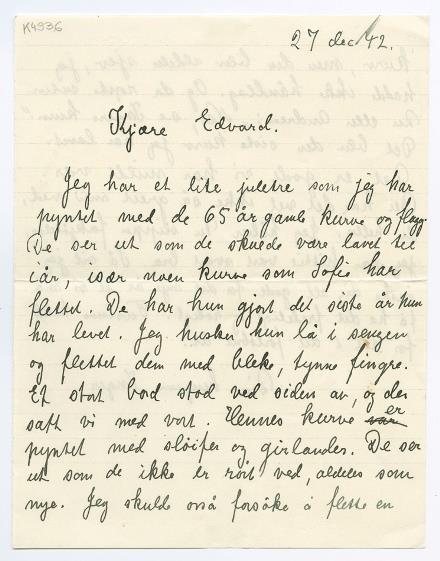 K4936
27 dec 42.
Kjære Edvard.
Jeg har et lite juletre som jeg har
pyntet med de 65 år gamle kurve og flagg.
De ser ut som de skulde være lavet til
iår, især noen kurve som Sofie har
flettet. De har hun gjort det siste år hun
har levet. Jeg husker hun lå i sengen
og flettet dem med bleke, tynne fingre.
Et stort bord stod ved siden av, og der
satt vi med vort. Hennes kurve er
pyntet med sløifer og girlander. De ser
ut som de ikke er rørt ved, aldeles som
nye. Jeg skulde også forsøke å flette en